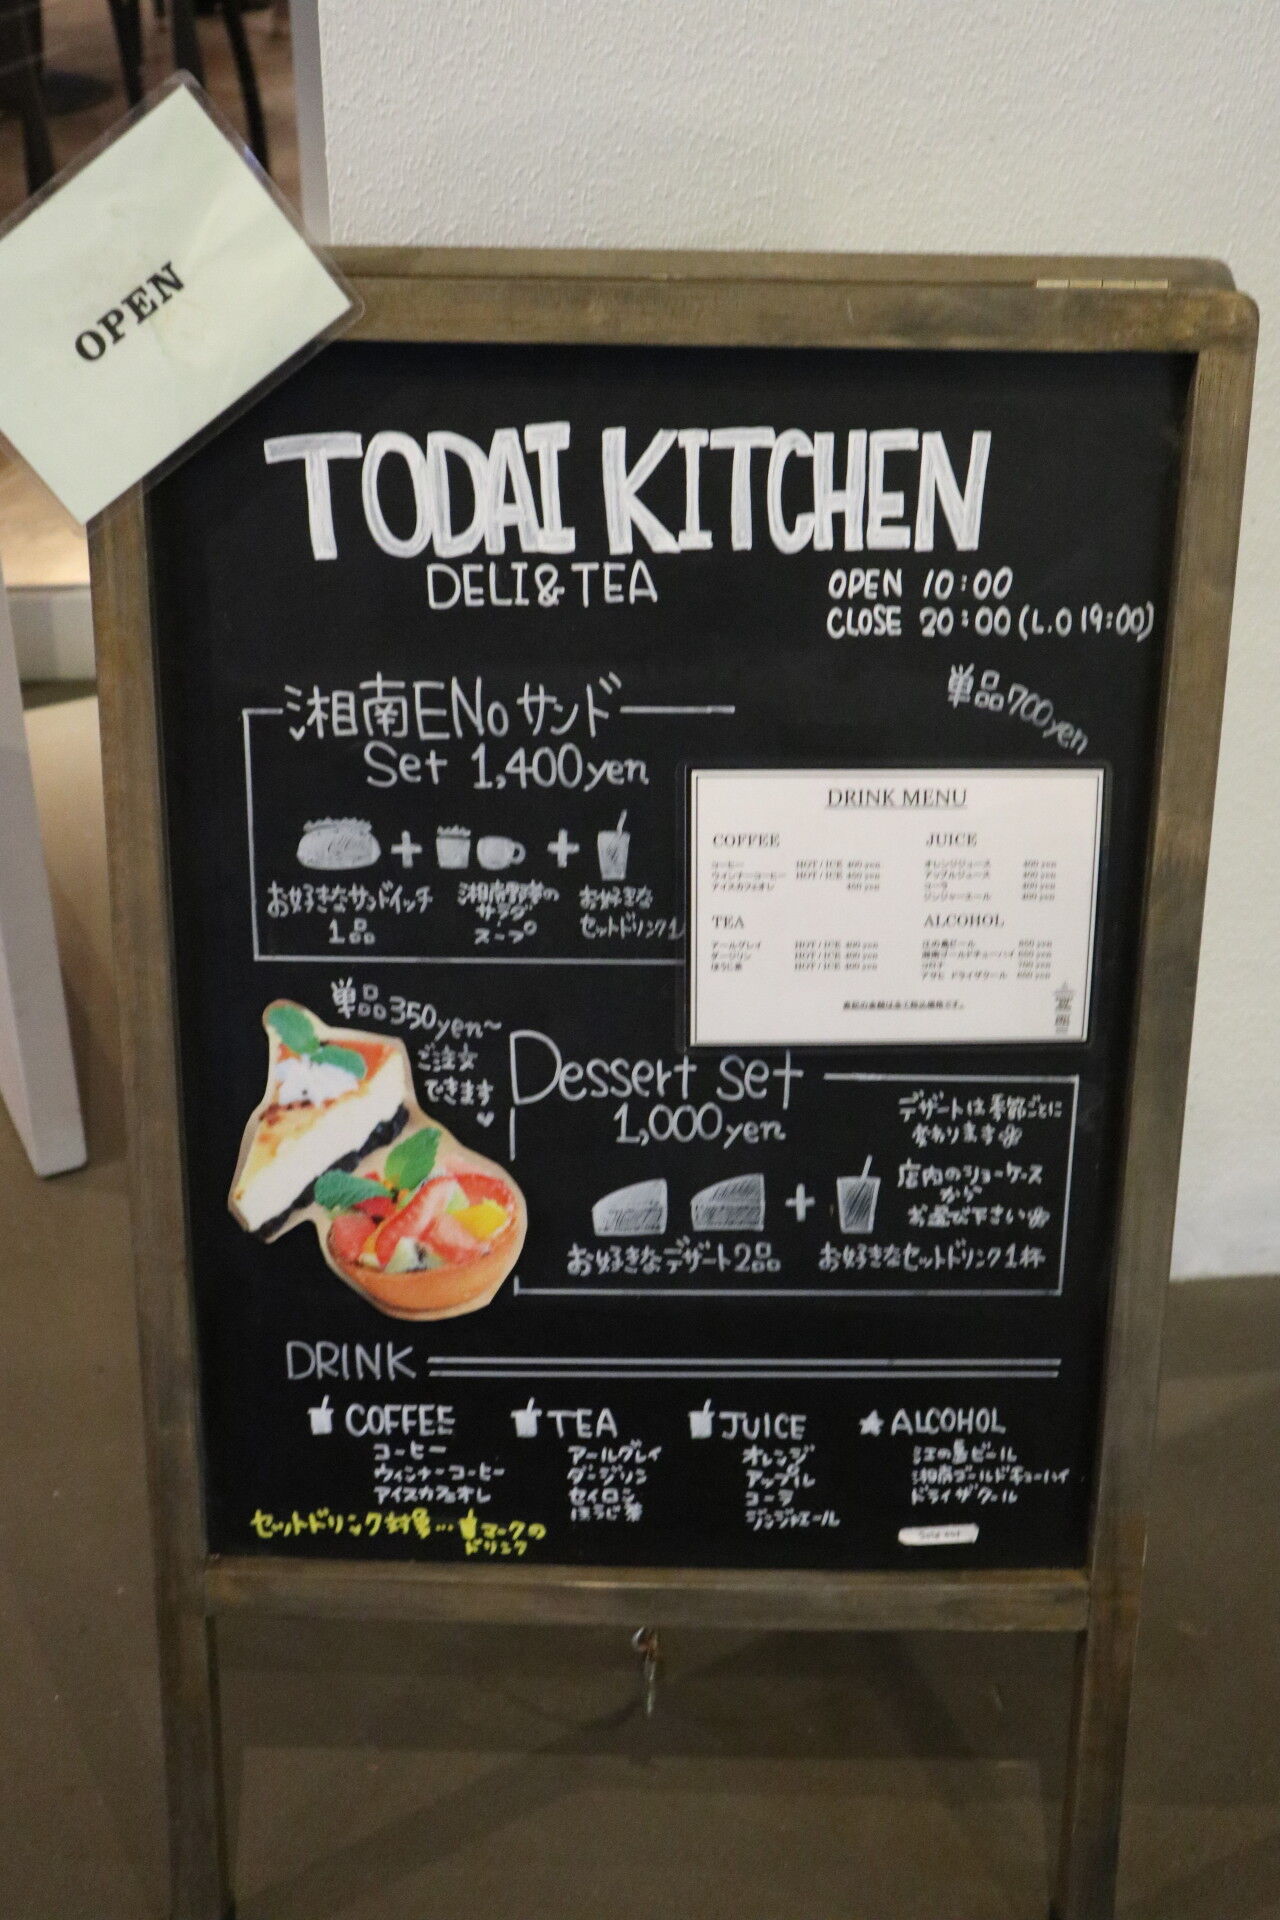 OPEN
TODAI KITCHEN
DELI & TEA
OPEN 10:00
CLOSE 20:00 (L.O 19:00)
湘南ENoサンド
Set 1,400yen
単品700yen
お好きなサンドイッチ
1品
湘南野菜の
サラダ
スープ
お好きな
セットドリンク1
DRINK MENU
COFFEE
コーヒー HOT / ICE 400 yen
ウィンナーコーヒー HOT / ICE 400 yen
アイスカフェオレ 400 yen
JUICE
オレンジジュース 400 yen
アップルジュース 400 yen
コーラ 400 yen
ジンジャーエール 400 yen
TEA
アールグレイ HOT / ICE 400 yen
ダージリン HOT / ICE 400 yen
ほうじ茶 HOT / ICE 400 yen
ALCOHOL
江の島ビール
湘南ゴールドチューハイ
アサヒ ドライゼロクール
表記の金額は全て税込価格です。
単品350yen~
ご注文
できます
Dessert set
1,000yen
デザートは季節ごとに
変わります
店内のショーケース
から
お選び下さい
お好きなデザート2品
お好きなセットドリンク1杯
DRINK
COFFEE
コーヒー
ウィンナーコーヒー
アイスカフェオレ
TEA
アールグレイ
ダージリン
セイロン
ほうじ茶
JUICE
オレンジ
アップル
コーラ
ジンジャエール
ALCOHOL
江の島ビール
湘南ゴールドチューハイ
ドライゼロクール
Sold out
セットドリンク対象…マークの
ドリンク